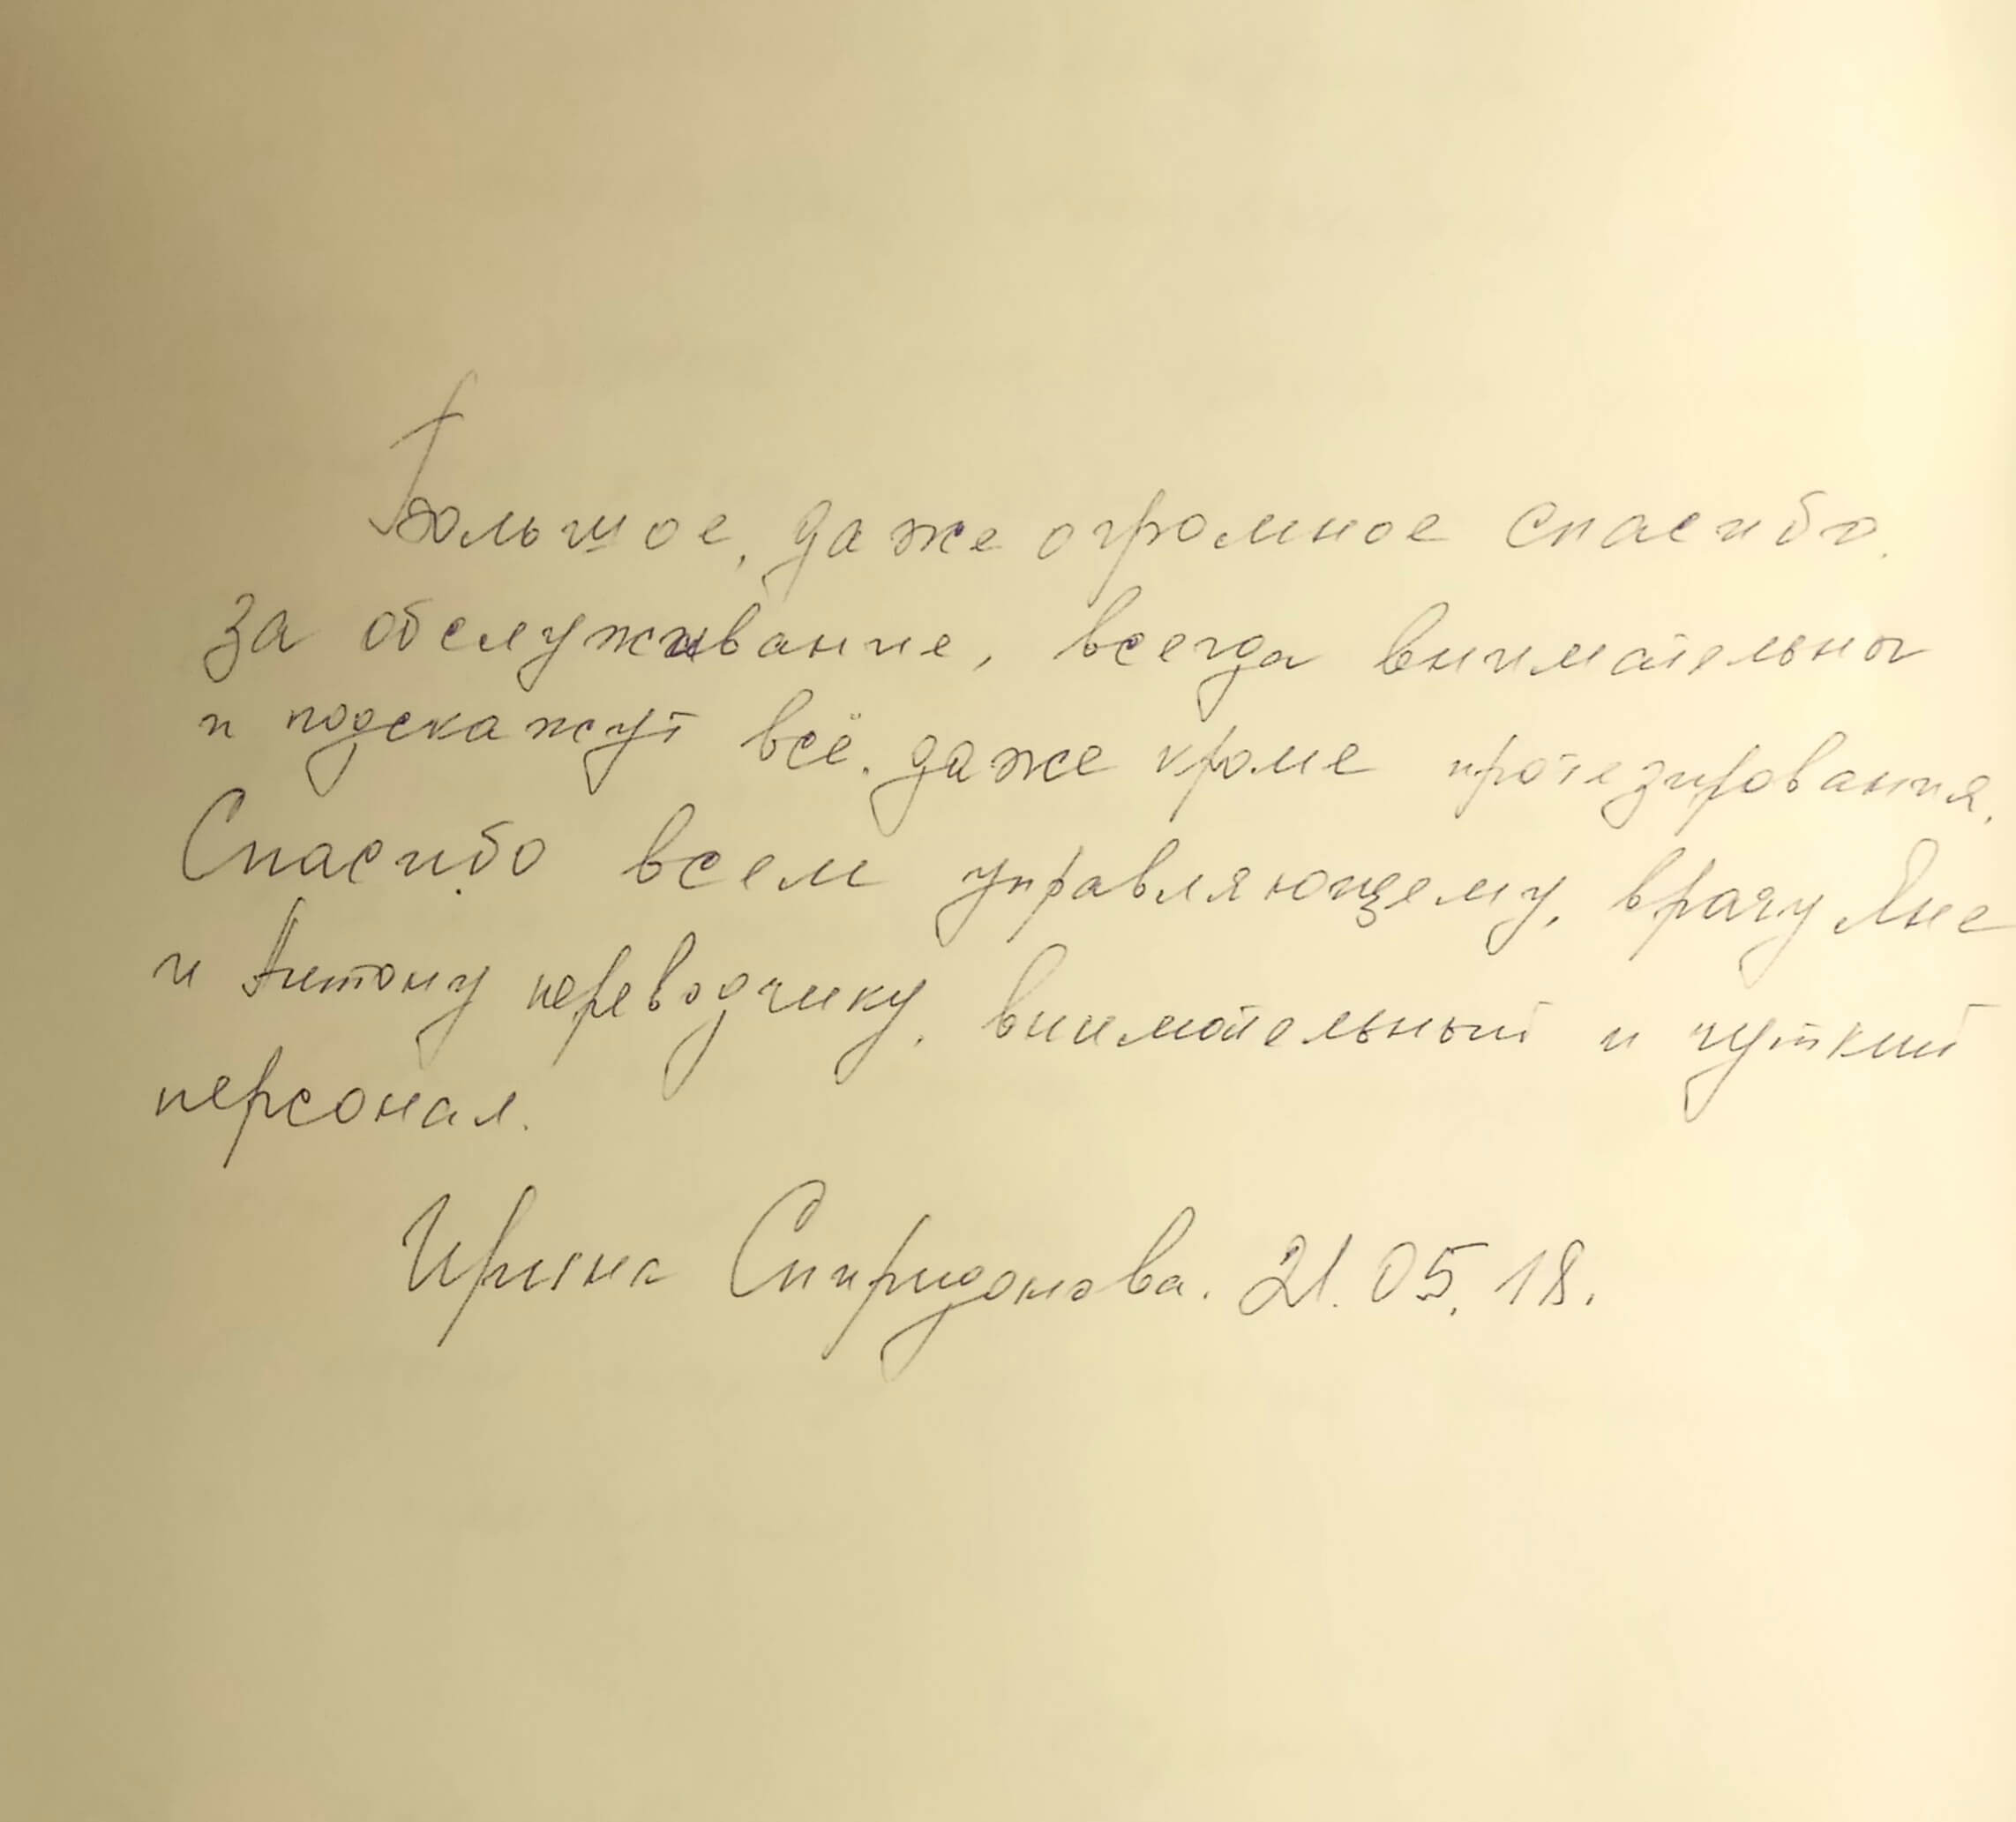 Большое, даже огромное спасибо.
за обслуживание, всегда внимательны
и подскажут всё. даже кроме протезирования.
Спасибо всем управляющему, врачу Яне
и Антону переводчику, внимательный и чуткий
персонал.
Ирина Спиридонова. 21.05.18.